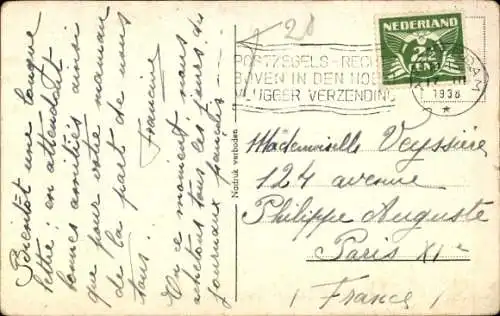 20
NEDERLAND
2½
CENT
POSTZEGELS - RECHTS
BOVEN IN DEN HOEK
VLUGGER VERZENDING
DAM
1938
Bientôt une longue
lettre : en attendant
bonnes amitiés ainsi
que pour votre maman
de la part de nous
tous.
Francine
En ce moment, nous
achetons tous les jours des
journaux français
Nadruk verboden
Mademoiselle Veyssière
124 avenue
Philippe Auguste
Paris XIe
(France)